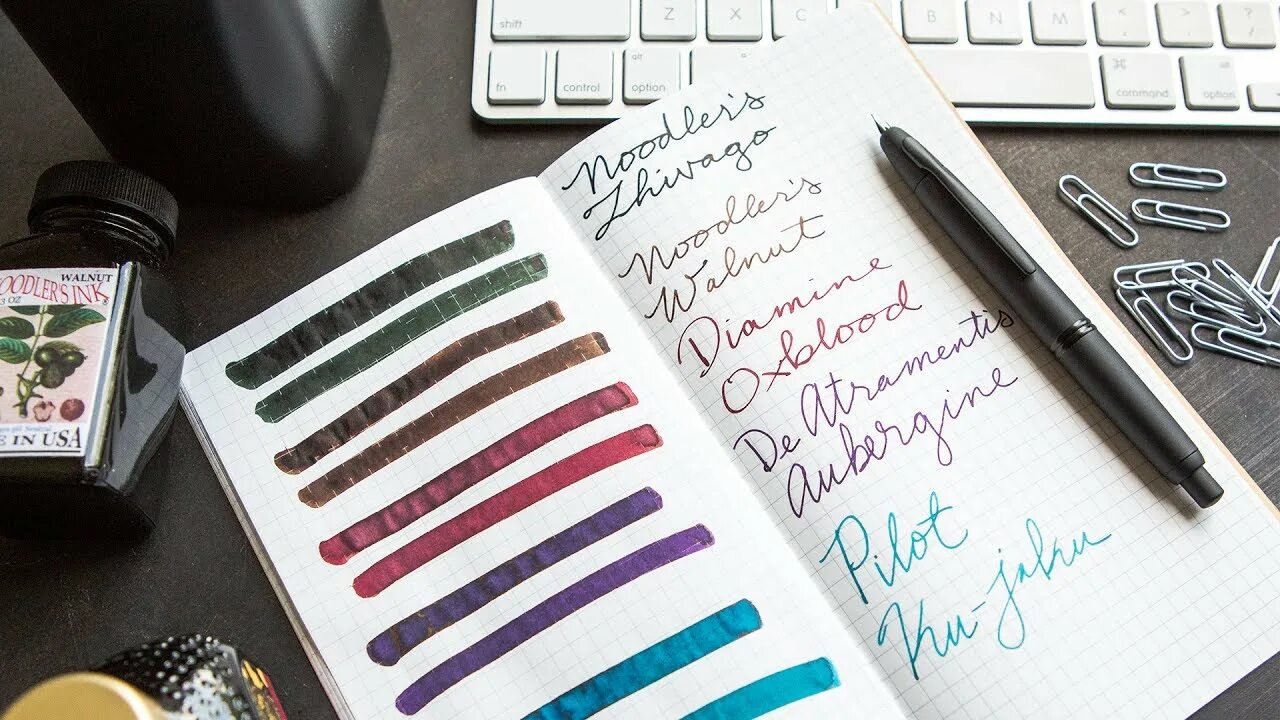 shift
Z
X
C
B
N
M
fn
control
alt
option
command
alt
option
Noodler's
Zhivago
Noodler's
Walnut
Diamine
Oxblood
De Atramentis
Aubergine
Pilot
Ku-jaku
WALNUT
3 OZ
OODLER'S INK
E IN USA